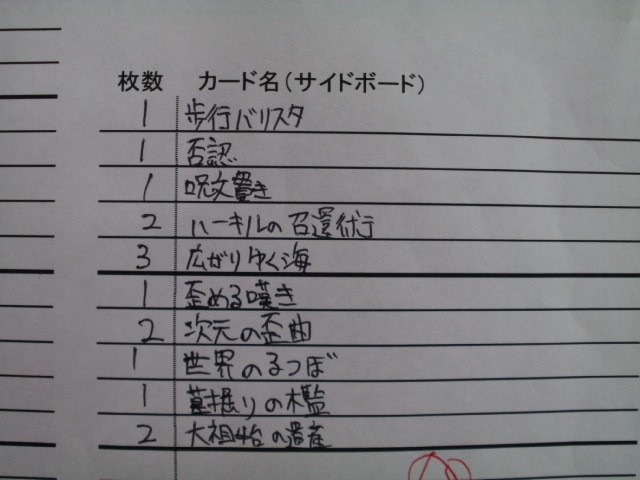 枚数 カード名(サイドボード)
1 歩行バリスタ
1 否認
1 呪文置き
2 ハーキルの召還術
3 広がりゆく海
1 歪める嘆き
2 次元の歪曲
1 世界のるつぼ
1 墓掘りの檻
2 大祖始の遺産